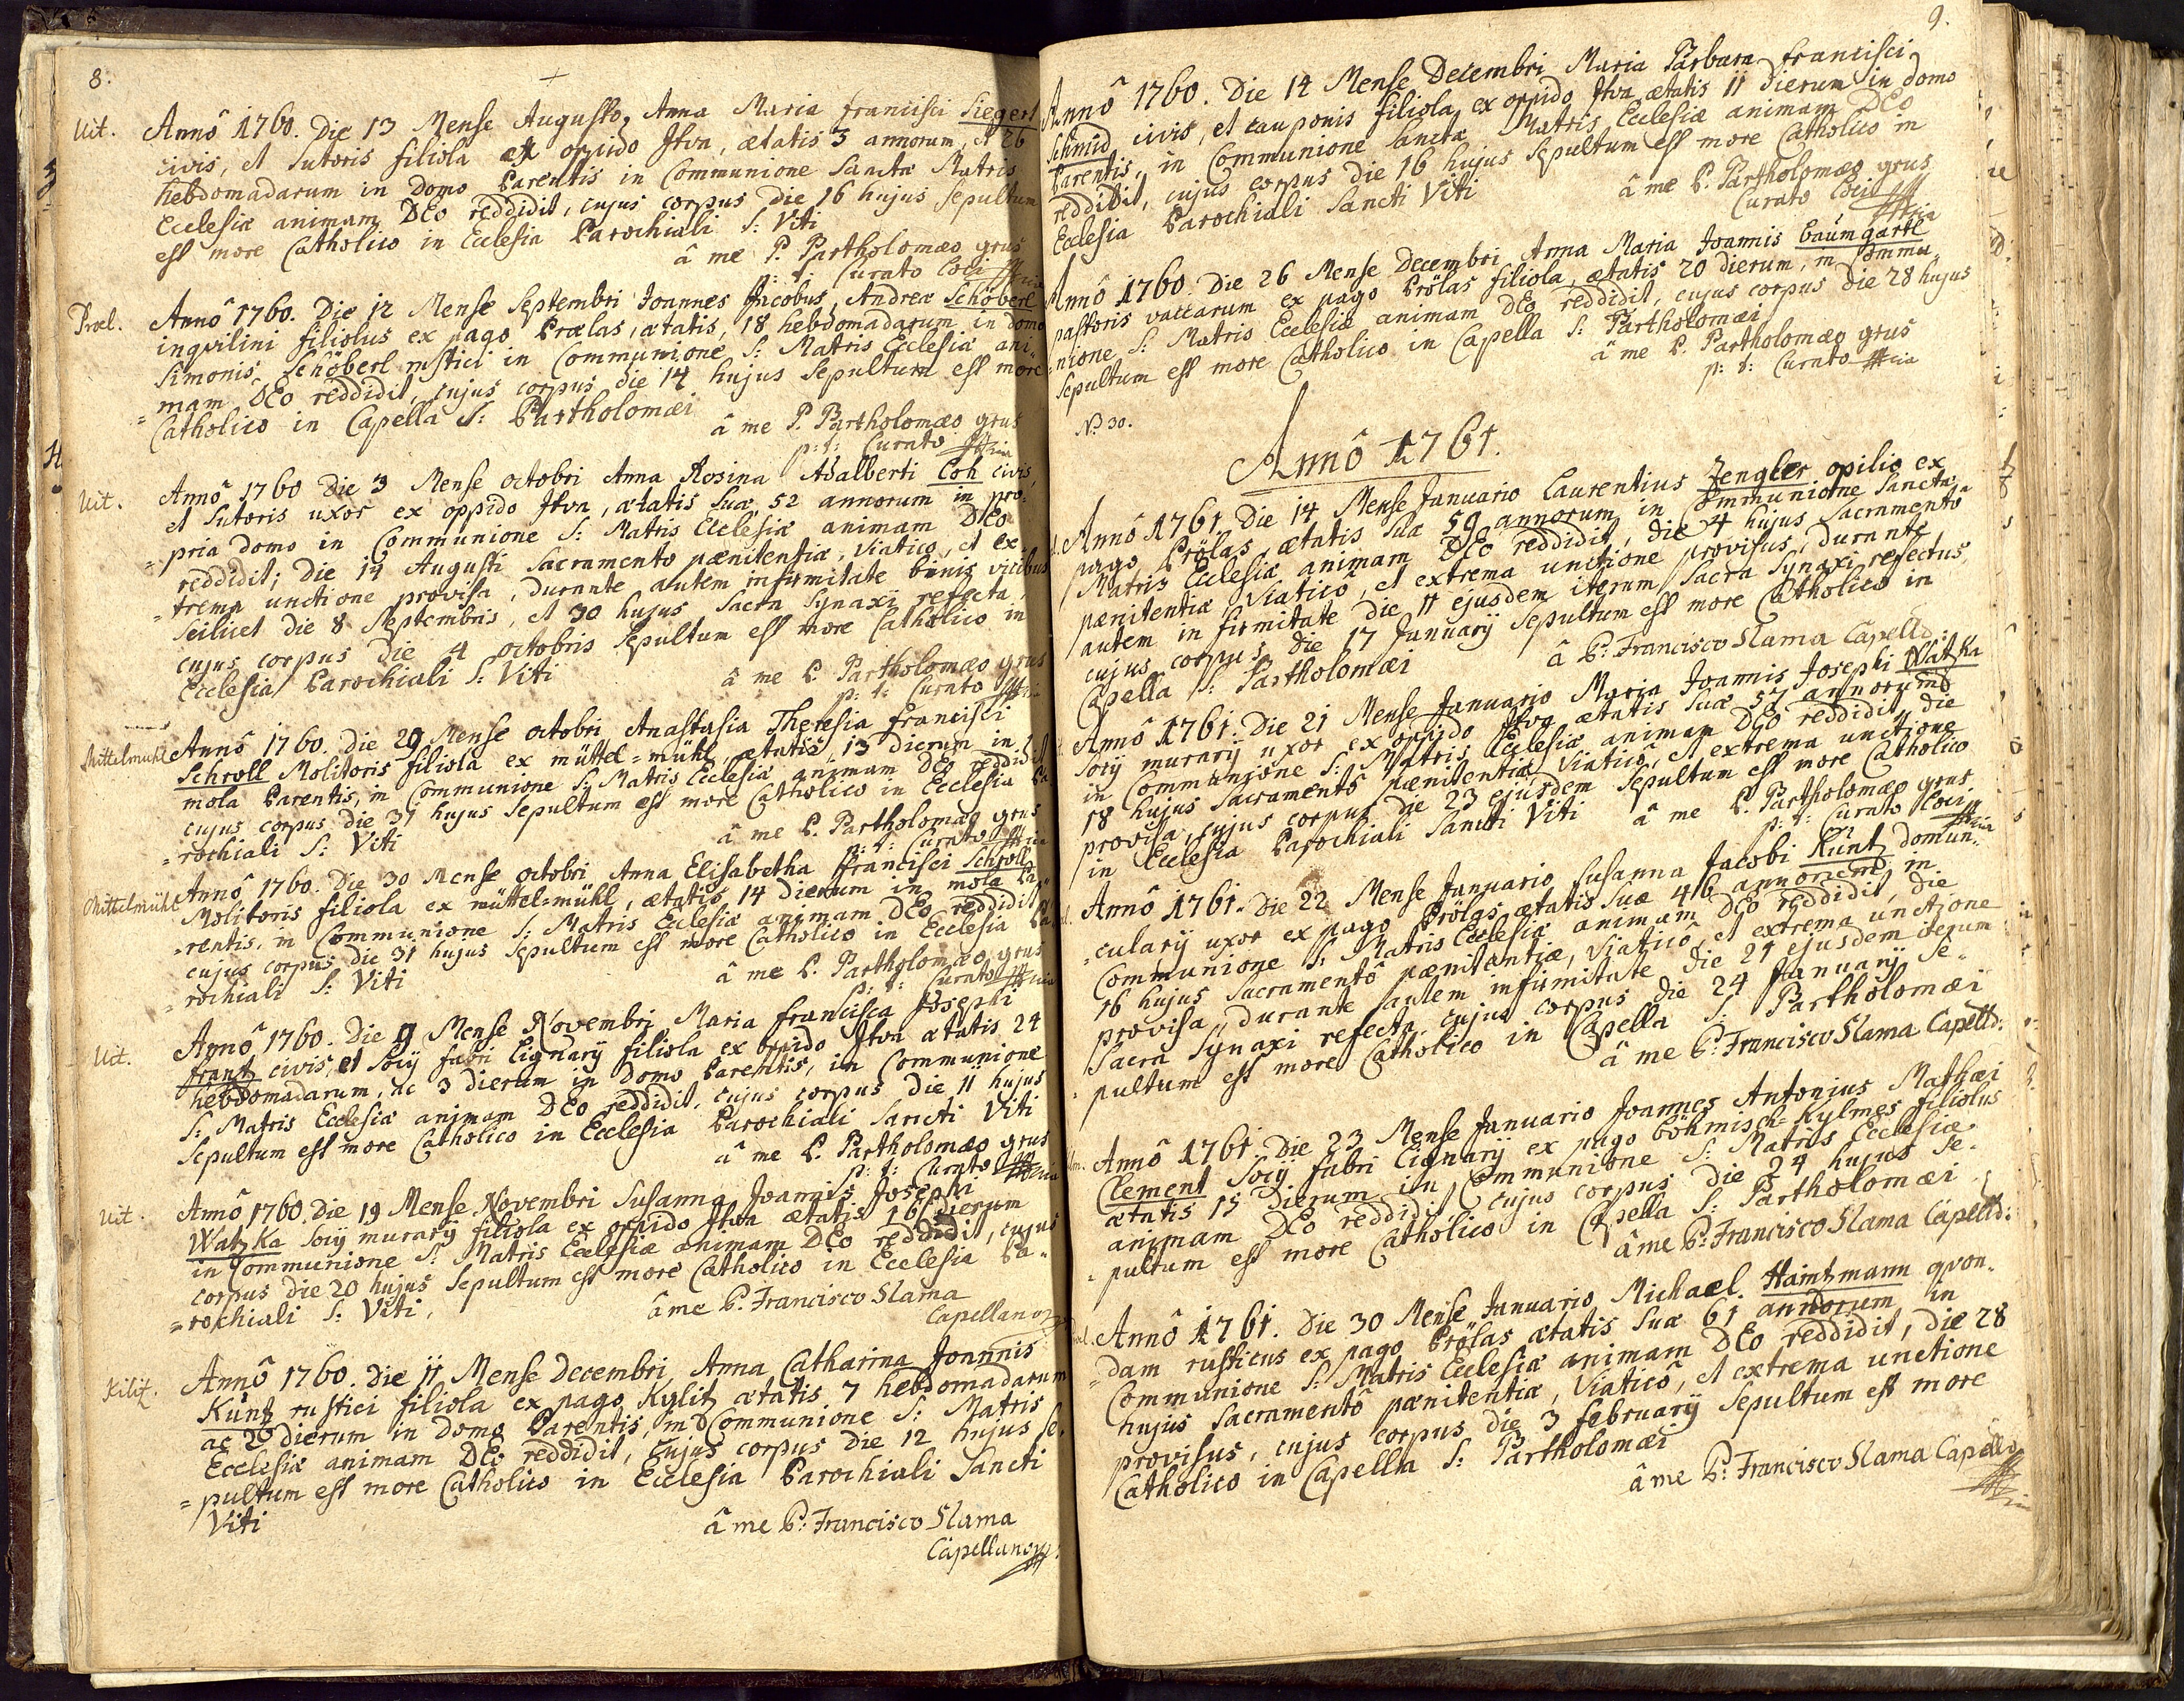 8.
Uit. Annô 1760. Die 13 Mense Augusto, Anna Maria francisci Siegert
civis, et sutoris filiola ex oppido Itva, ætatis 3 annorum, et 26
hebdomadarum in domo Parentis in Communione Sanctæ Matris
Ecclesiæ animam DEo reddidit, cujus corpus die 16 hujus sepultum
est more Catholico in Ecclesia Parochiali S: Viti
â me P. Partholomæo grus
p: t: Curato Loci
Prœl. Annô 1760. Die 12 Mense Septembri Joannes Jacobus, Andreæ Schöberl
inqvilini filiolus ex pago Prœlas, ætatis, 18 hebdomadarum in domo
Simonis Schöberl rustici in Communione S: Matris Ecclesiæ ani=
=mam DEo reddidit, cujus corpus die 14 hujus sepultum est more
Catholico in Capella S: Partholomæi
â me P. Partholomæo grus
p: t: Curato
Uit. Annô 1760 Die 3 Mense octobri Anna Rosina Adalberti Loh civis,
et sutoris uxor ex oppido Itva, ætatis suæ 52 annorum in pro=
=pria domo in Communione S: Matris Ecclesiæ animam DEo
reddidit; die 14 Augusti Sacramento pænitentiæ, viatico, et ex=
=trema unctione provisa, durante autem infirmitate binis vicibus
scilicet die 8 Septembris, et 30 hujus sacra synaxi refecta,
cujus corpus die 4 octobris sepultum est more Catholico in
Ecclesia Parochiali S: Viti
â me P. Partholomæo grus
p: t: Curato
Mittelmühl Annô 1760. Die 29 Mense octobri Anastasia Theresia francisci
Schroll Molitoris filiola ex müttel=mühl, ætatis 13 dierum in
mola Parentis, in Communione S: Matris Ecclesiæ animam DEo reddidit
cujus corpus die 31 hujus sepultum est more Catholico in Ecclesia Pa
=rochiali S: Viti
â me P. Partholomæo grus
p: t: Curato
Mittelmühl Annô 1760. Die 30 Mense octobri Anna Elisabetha Francisci Schroll
Molitoris filiola ex müttel=mühl, ætatis, 14 dierum in mola Pa
=rentis, in Communione S: Matris Ecclesiæ animam DEo reddidit
cujus corpus die 31 hujus sepultum est more Catholico in Ecclesia Pa
=rochiali S: Viti
â me P. Partholomæo grus
p: t: Curato
Uit. Annô 1760. Die 9 Mense Novembri Maria francisca Josephi
frantz civis, et socij fabri lignarij filiola ex oppido Itva ætatis 24
hebdomadarum, ac 3 dierum in domo Parentis, in Communione
S: Matris Ecclesiæ animam DEo reddidit, cujus corpus die 11 hujus
sepultum est more Catholico in Ecclesia Parochiali Sancti Viti
â me P. Partholomæo grus
p: t: Curato
Uit. Annô 1760. Die 19 Mense Novembri Susanna Joannis Josephi
Watzka socij murarij filiola ex oppido Itva ætatis 16 dierum
in Communione S: Matris Ecclesiæ animam DEo reddidit, cujus
corpus die 20 hujus sepultum est more Catholico in Ecclesia Pa=
=rochiali S: Viti.
â me P: Francisco Slama
Capellano
Kilit. Annô 1760. Die 11 Mense Decembri, Anna Catharina Joannis
Küntz rustici filiola ex pago Kylitz ætatis 7 hebdomadarum
ac 2 dierum in domo Parentis, in Communione S: Matris
Ecclesiæ animam DEo reddidit, cujus corpus die 12 hujus se
=pultum est more Catholico in Ecclesia Parochiali Sancti
Viti
â me P: Francisco Slama
Capellano
9.
Annô 1760. Die 14 Mense Decembri Maria Parbara francisci
Schmid civis, et cauponis filiola, ex oppido Itva, ætatis 11 dierum in domo
Parentis, in Communione Sanctæ Matris Ecclesiæ animam DEo
reddidit, cujus corpus die 16 hujus sepultum est more Catholico in
Ecclesia Parochiali Sancti Viti
â me P. Partholomæo grus
Curato Loci
Annô 1760 Die 26 Mense Decembri Anna Maria Joannis baumgartl
pastoris vaccarum ex pago Prölas filiola, ætatis 20 dierum, in Commu
=nione S: Matris Ecclesiæ animam DEo reddidit, cujus corpus die 28 hujus
sepultum est more Catholico in Capella S: Partholomæi
â me P. Partholomæo grus
p: t: Curato
No. 30.
Annô 1761.
Annô 1761 Die 14 Mense Januario Laurentius Zengler opilio ex
pago Prölas ætatis suæ 59 annorum in Communione Sanctæ
Matris Ecclesiæ animam DEo reddidit, die 4 hujus Sacramentô
pænitentiæ Viaticô, et extrema unctione provisus, durante
autem infirmitate die 11 ejusdem iterum Sacra Synaxi refectus,
cujus corpus die 17 Januarij sepultum est more Catholico in
Capella S: Partholomæi
â P: Francisco Slama Capelld:
Annô 1761. Die 21 Mense Januario Maria Joannis Josephi Watzka
socij murarij uxor ex oppido Itva ætatis suæ 57 annorum
in Communione S: Matris Ecclesiæ animam DEo reddidit, die
18 hujus Sacramentô pænitentiæ, Viaticô, et extrema unctione
provisa, cujus corpus die 23 ejusdem sepultum est more Catholico
in Ecclesia Parochiali Sancti Viti
â me P. Partholomæo grus
p: t: Curato Loci
Annô 1761. Die 22 Mense Januario Susanna Jacobi Küntz domun=
=cularij uxor ex pago Prölas, ætatis suæ 46 annorum in
Communione S: Matris Ecclesiæ animam DEo reddidit, die
16 hujus Sacramentô pænitentiæ, Viaticô, et extrema unctione
provisa, durante autem infirmitate die 21 ejusdem iterum
Sacra Synaxi refecta, cujus corpus die 24 Januarij se=
=pultum est more Catholico in Capella S: Partholomæi
â me P: Francisco Slama Capelld:
Annô 1761. Die 23 Mense Januario Joannes Antonius Mathæi
Clement socij fabri lignarij ex pago böhmisch=Kylmes filiolus
ætatis 15 dierum in Communione S: Matris Ecclesiæ
animam DEo reddidit, cujus corpus die 24 hujus se=
=pultum est more Catholico in Capella S: Partholomæi
â me P: Francisco Slama Capelld:
Annô 1761. Die 30 Mense Januario Michael Haintzmann qvon=
=dam rusticus ex pago Prölas ætatis suæ 61 annorum in
Communione S: Matris Ecclesiæ animam DEo reddidit, die 28
hujus Sacramentô pænitentiæ, Viaticô, et extrema unctione
provisus, cujus corpus die 3 februarij sepultum est more
Catholico in Capella S: Partholomæi
â me P: Francisco Slama Capelld